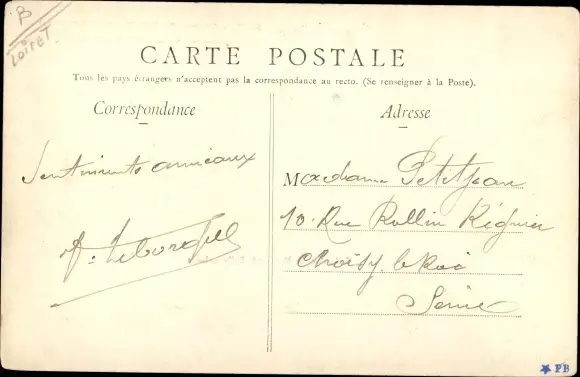 B
Loiret.
CARTE POSTALE
Tous les pays étrangers n'acceptent pas la correspondance au recto. (Se renseigner à la Poste).
Correspondance
Sentiments amicaux
Adresse
Madame Petitjean
10. Rue Rollin Régnier
Choisy le Roi
Seine
FB